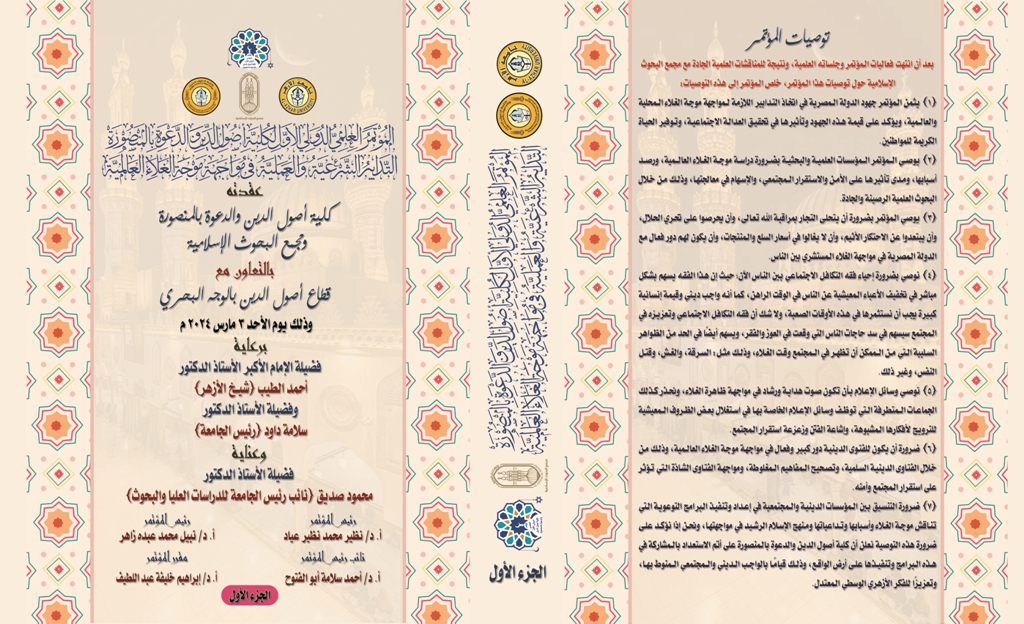 المؤتمر العلمي الدولي الأول لكلية أصول الدين والدعوة بالمنصورة
التدابير الشرعية والعملية في مواجهة موجة الغلاء العالمية
عقدته
كلية أصول الدين والدعوة بالمنصورة
ومجمع البحوث الإسلامية
بالتعاون مع
قطاع أصول الدين بالوجه البحري
وذلك يوم الأحد ٣ مارس ٢٠٢٤ م
برعاية
فضيلة الإمام الأكبر الأستاذ الدكتور
أحمد الطيب (شيخ الأزهر)
وفضيلة الأستاذ الدكتور
سلامة داود (رئيس الجامعة)
وعناية
فضيلة الأستاذ الدكتور
محمود صديق (نائب رئيس الجامعة للدراسات العليا والبحوث)
رئيس المؤتمر
أ. د/ نظير محمد نظير عياد
رئيس المؤتمر
أ. د/ نبيل محمد عبده زاهر
نائب رئيس المؤتمر
أ. د/ أحمد سلامة أبو الفتوح
مقرر المؤتمر
أ. د/ إبراهيم خليفة عبد اللطيف
الجزء الأول
المؤتمر العلمي الدولي الأول لكلية أصول الدين والدعوة بالمنصورة
التدابير الشرعية والعملية في مواجهة موجة الغلاء العالمية
الجزء الأول
توصيات المؤتمر
بعد أن انتهت فعاليات المؤتمر وجلساته العلمية، ونتيجة للمناقشات العلمية الجادة مع مجمع البحوث
الإسلامية حول توصيات هذا المؤتمر، خلص المؤتمر إلى هذه التوصيات:
(١) يثمن المؤتمر جهود الدولة المصرية في اتخاذ التدابير اللازمة لمواجهة موجة الغلاء المحلية
والعالمية، ويؤكد على قيمة هذه الجهود وتأثيرها في تحقيق العدالة الاجتماعية، وتوفير الحياة
الكريمة للمواطنين.
(٢) يوصي المؤتمر المؤسسات العلمية والبحثية بضرورة دراسة موجة الغلاء العالمية، ورصد
أسبابها، ومدى تأثيرها على الأمن والاستقرار المجتمعي، والإسهام في معالجتها، وذلك من خلال
البحوث العلمية الرصينة والجادة.
(٣) يوصي المؤتمر بضرورة أن يتحلى التجار بمراقبة الله تعالى، وأن يحرصوا على تحري الحلال،
وأن يبتعدوا عن الاحتكار الأثيم، وأن لا يغالوا في أسعار السلع والمنتجات، وأن يكون لهم دور فعال مع
الدولة المصرية في مواجهة الغلاء المستشري بين الناس.
(٤) نوصي بضرورة إحياء فقه التكافل الاجتماعي بين الناس الآن، حيث إن هذا الفقه يسهم بشكل
مباشر في تخفيف الأعباء المعيشية عن الناس في الوقت الراهن، كما أنه واجب ديني وقيمة إنسانية
كبيرة يجب أن نستثمرها في هذه الأوقات الصعبة، ولا شك أن فقه التكافل الاجتماعي وتعزيزه في
المجتمع سيسهم في سد حاجات الناس التي وقعت في العوز والفقر، ويسهم أيضًا في الحد من الظواهر
السلبية التي من الممكن أن تظهر في المجتمع وقت الغلاء، وذلك مثل: السرقة، والغش، وقتل
النفس، وغير ذلك.
(٥) نوصي وسائل الإعلام بأن تكون صوت هداية ورشاد في مواجهة ظاهرة الغلاء، ونحذر كذلك
الجماعات المتطرفة التي توظف وسائل الإعلام الخاصة بها في استغلال بعض الظروف المعيشية
للترويج لأفكارها المشبوهة، وإشاعة الفتن وزعزعة استقرار المجتمع.
(٦) ضرورة أن يكون للفتوى الدينية دور كبير وفعال في مواجهة موجة الغلاء العالمية، وذلك من
خلال الفتاوى الدينية السليمة، وتصحيح المفاهيم المغلوطة، ومواجهة الفتاوى الشاذة التي تؤثر
على استقرار المجتمع وأمنه.
(٧) ضرورة التنسيق بين المؤسسات الدينية والمجتمعية في إعداد وتنفيذ البرامج التوعوية التي
تناقش موجة الغلاء وأسبابها وتداعياتها ومنهج الإسلام الرشيد في مواجهتها، ونحن إذا نؤكد على
ضرورة هذه التوصية نعلن أن كلية أصول الدين والدعوة بالمنصورة على أتم الاستعداد بالمشاركة في
هذه البرامج وتنفيذها على أرض الواقع، وذلك قيامًا بالواجب الديني والمجتمعي المنوط بها،
وتعزيزًا للفكر الأزهري الوسطي المعتدل.